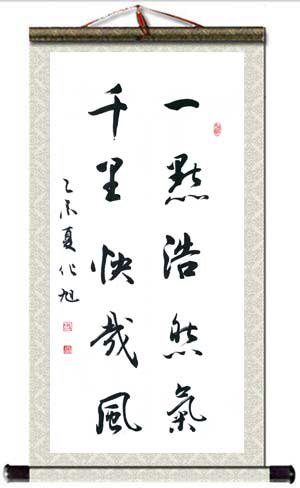 一點浩然氣
千里快哉風
乙未夏代旭